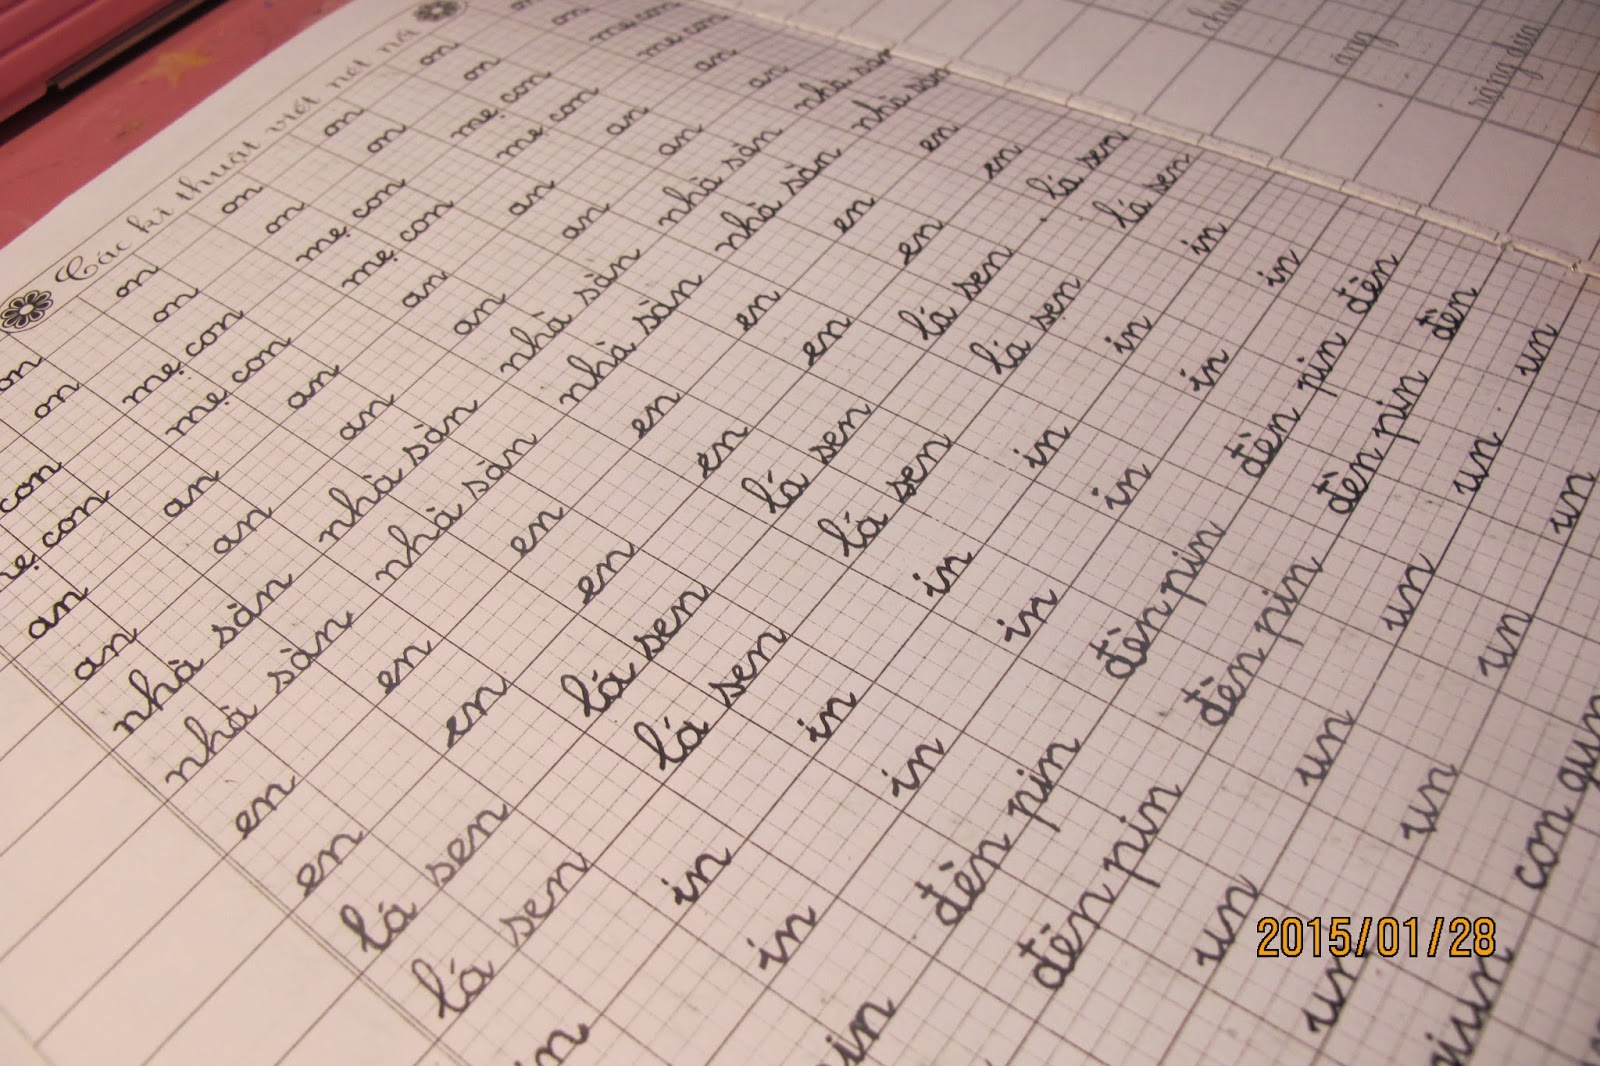 Các kĩ thuật viết nét nố
on on on on on on
on on on on on on
con mẹ con mẹ con mẹ con mẹ con
mẹ con mẹ con mẹ con mẹ con mẹ con
an an an an an an an
an an an an an an an
nhà sàn nhà sàn nhà sàn nhà sàn nhà sàn
nhà sàn nhà sàn nhà sàn nhà sàn nhà sàn
en en en en en en en
en en en en en en en
lá sen lá sen lá sen lá sen lá sen
lá sen lá sen lá sen lá sen lá sen
in in in in in in in
in in in in in in
pin đèn pin đèn pin đèn pin đèn
đèn pin đèn pin đèn pin đèn
un un un un un
un un un un
giun con giun
2015/01/28